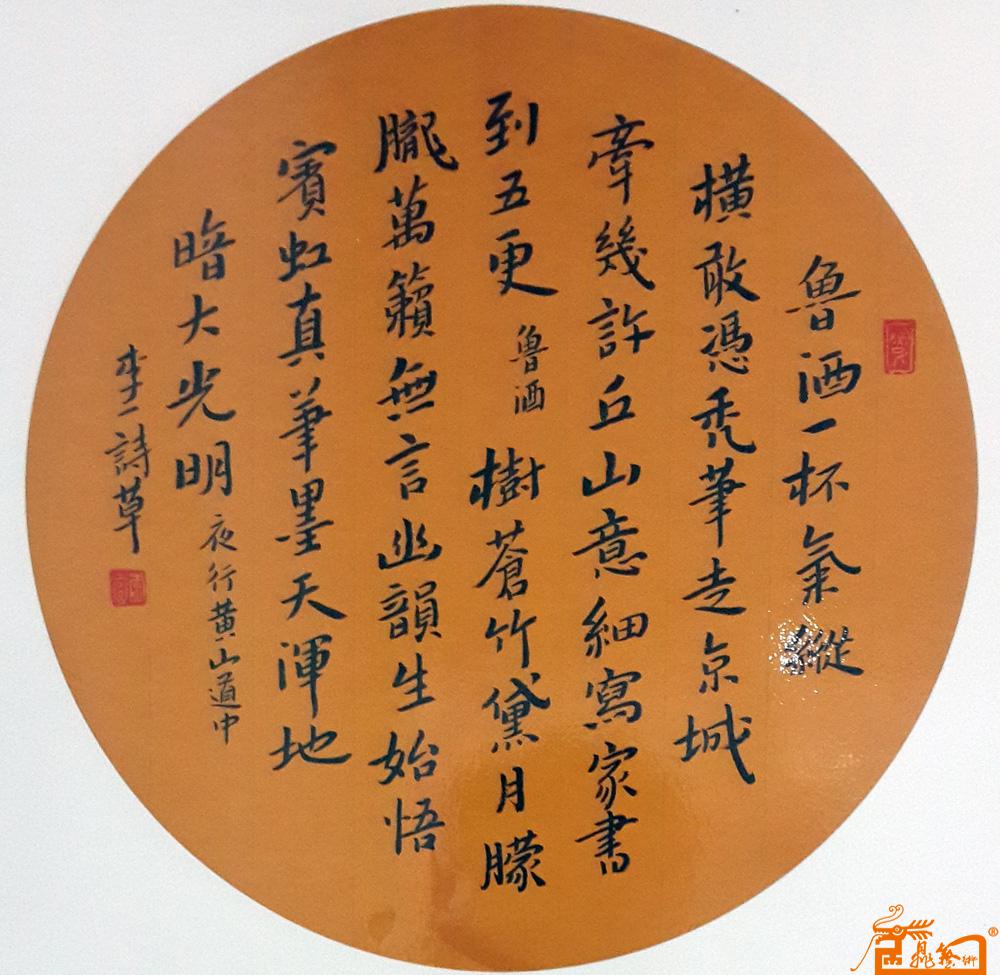 魯酒一杯氣縱
橫敢憑禿筆走京城
牽幾許丘山意細寫家書
到五更 魯酒 樹蒼竹黛月朦
朧萬籟無言幽韻生始悟
賓虹真筆墨天渾地
暗大光明 夜行黄山道中
李一詩草